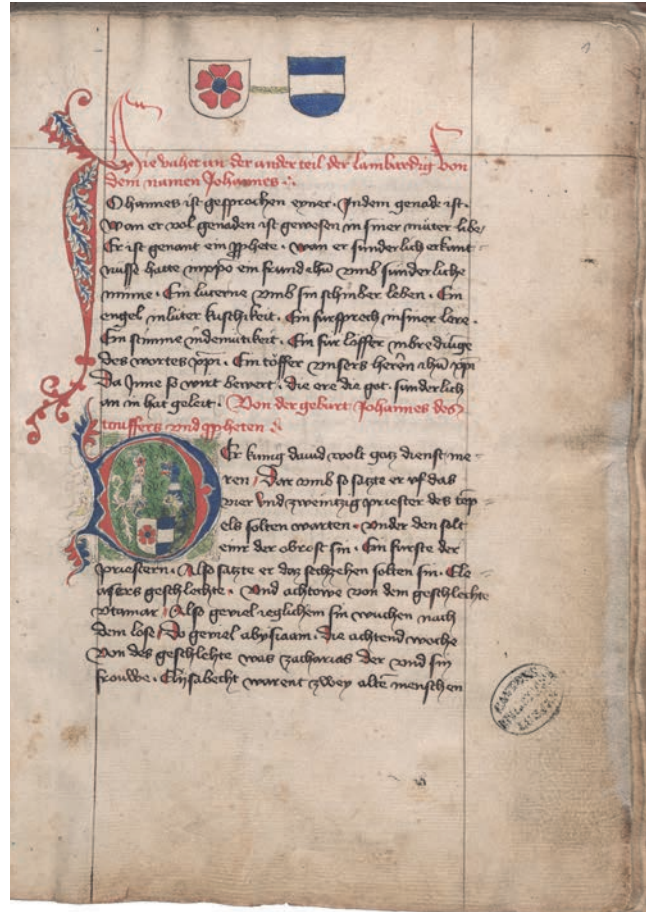 1
Hie vahet an der ander teil der lambardig von
dem namen Johannes ·:·
Ohannes ist gesprochen eyner · Indem genade ist ·
wan er vol genaden ist gewesen in siner muͦter libe
Er ist genant ein ꝓphete · wan er sunderlich erkant
nusse hatte in xp̄o ein frund ih̄u vmb sunderliche
minne · Ein lucerne vmb sin schinber leben · Ein
engel in luter kuschikeit · Ein fursprech in siner lere ·
Ein stimme in demuͤtikeit · Ein fur löffer in bredinge
des wortes xp̄i · Ein töffer vnsers herẽn ih̄u xp̄i
Da Inne so wirt bewert · die ere die got · sunderlich
an in hat geleit · Von der geburt Johannes des
touffers vnd ꝓpheten ·:·
Er kunig dauid wolt gotz dienst me
ren / Dar vmb so satzte er vf das
vier vnd zweintzig priester des temp
els solten warten · vnder den solt
einr der obrost sin · Ein furste der
priestern · Also satzte er daz sechzehen solten sin · Ele
asers geschlechte · Vnd achtowe von dem geschlechte
ytamar / Also geviel ieglichem sin wuchen nach
dem lose / Do geviel abysaam · die achtend woche
Von des geschlechte was zacharias der vnd sin
frouwe · Elysabecht warent zwey alte menschen